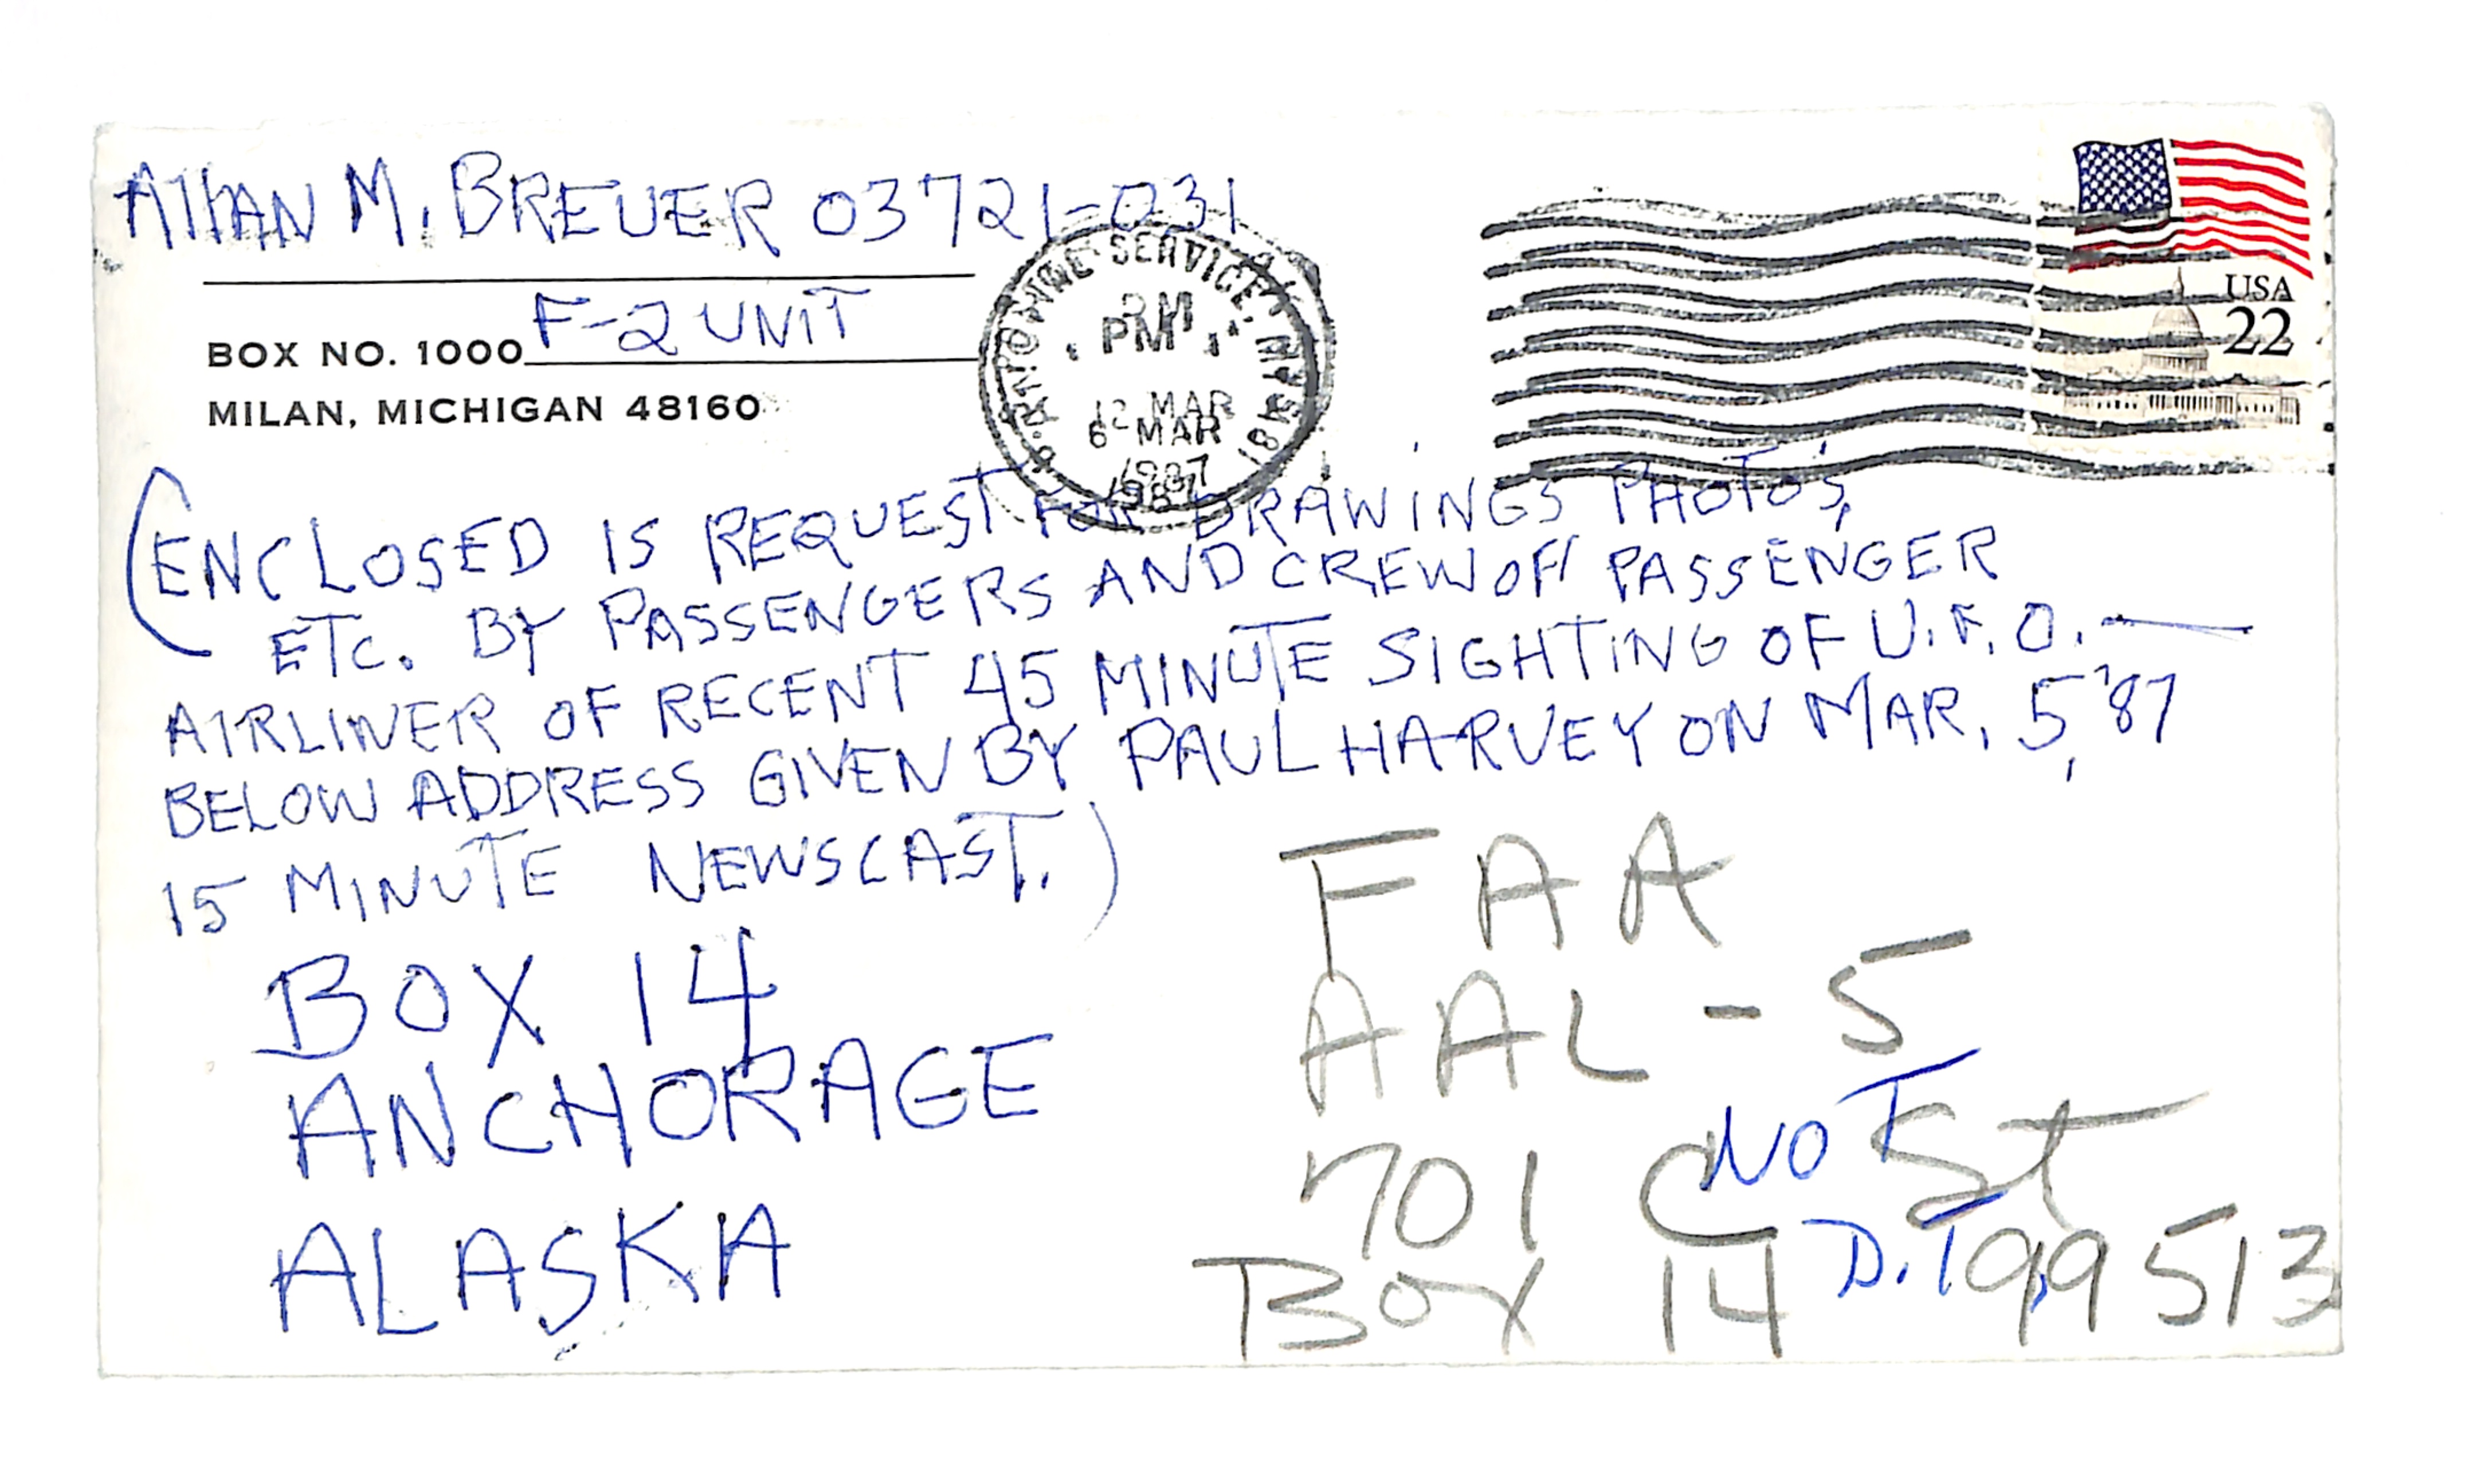 AllAN M. BREUER 03721-031
F-2 UNIT
BOX NO. 1000
MILAN, MICHIGAN 48160
SERVICE
PM
PM
12 MAR
6 MAR
1987
1987
481
USA
22
(ENCLOSED IS REQUEST FOR DRAWINGS PHOTO'S,
ETC. BY PASSENGERS AND CREW OF PASSENGER
AIRLINER OF RECENT 45 MINUTE SIGHTING OF U.F.O. —
BELOW ADDRESS GIVEN BY PAUL HARVEY ON MAR. 5, '87
15 MINUTE NEWSCAST.)
BOX 14
ANCHORAGE
ALASKA
FAA
AAL-5
NOT
701 C St
D.T.
Box 14 99513